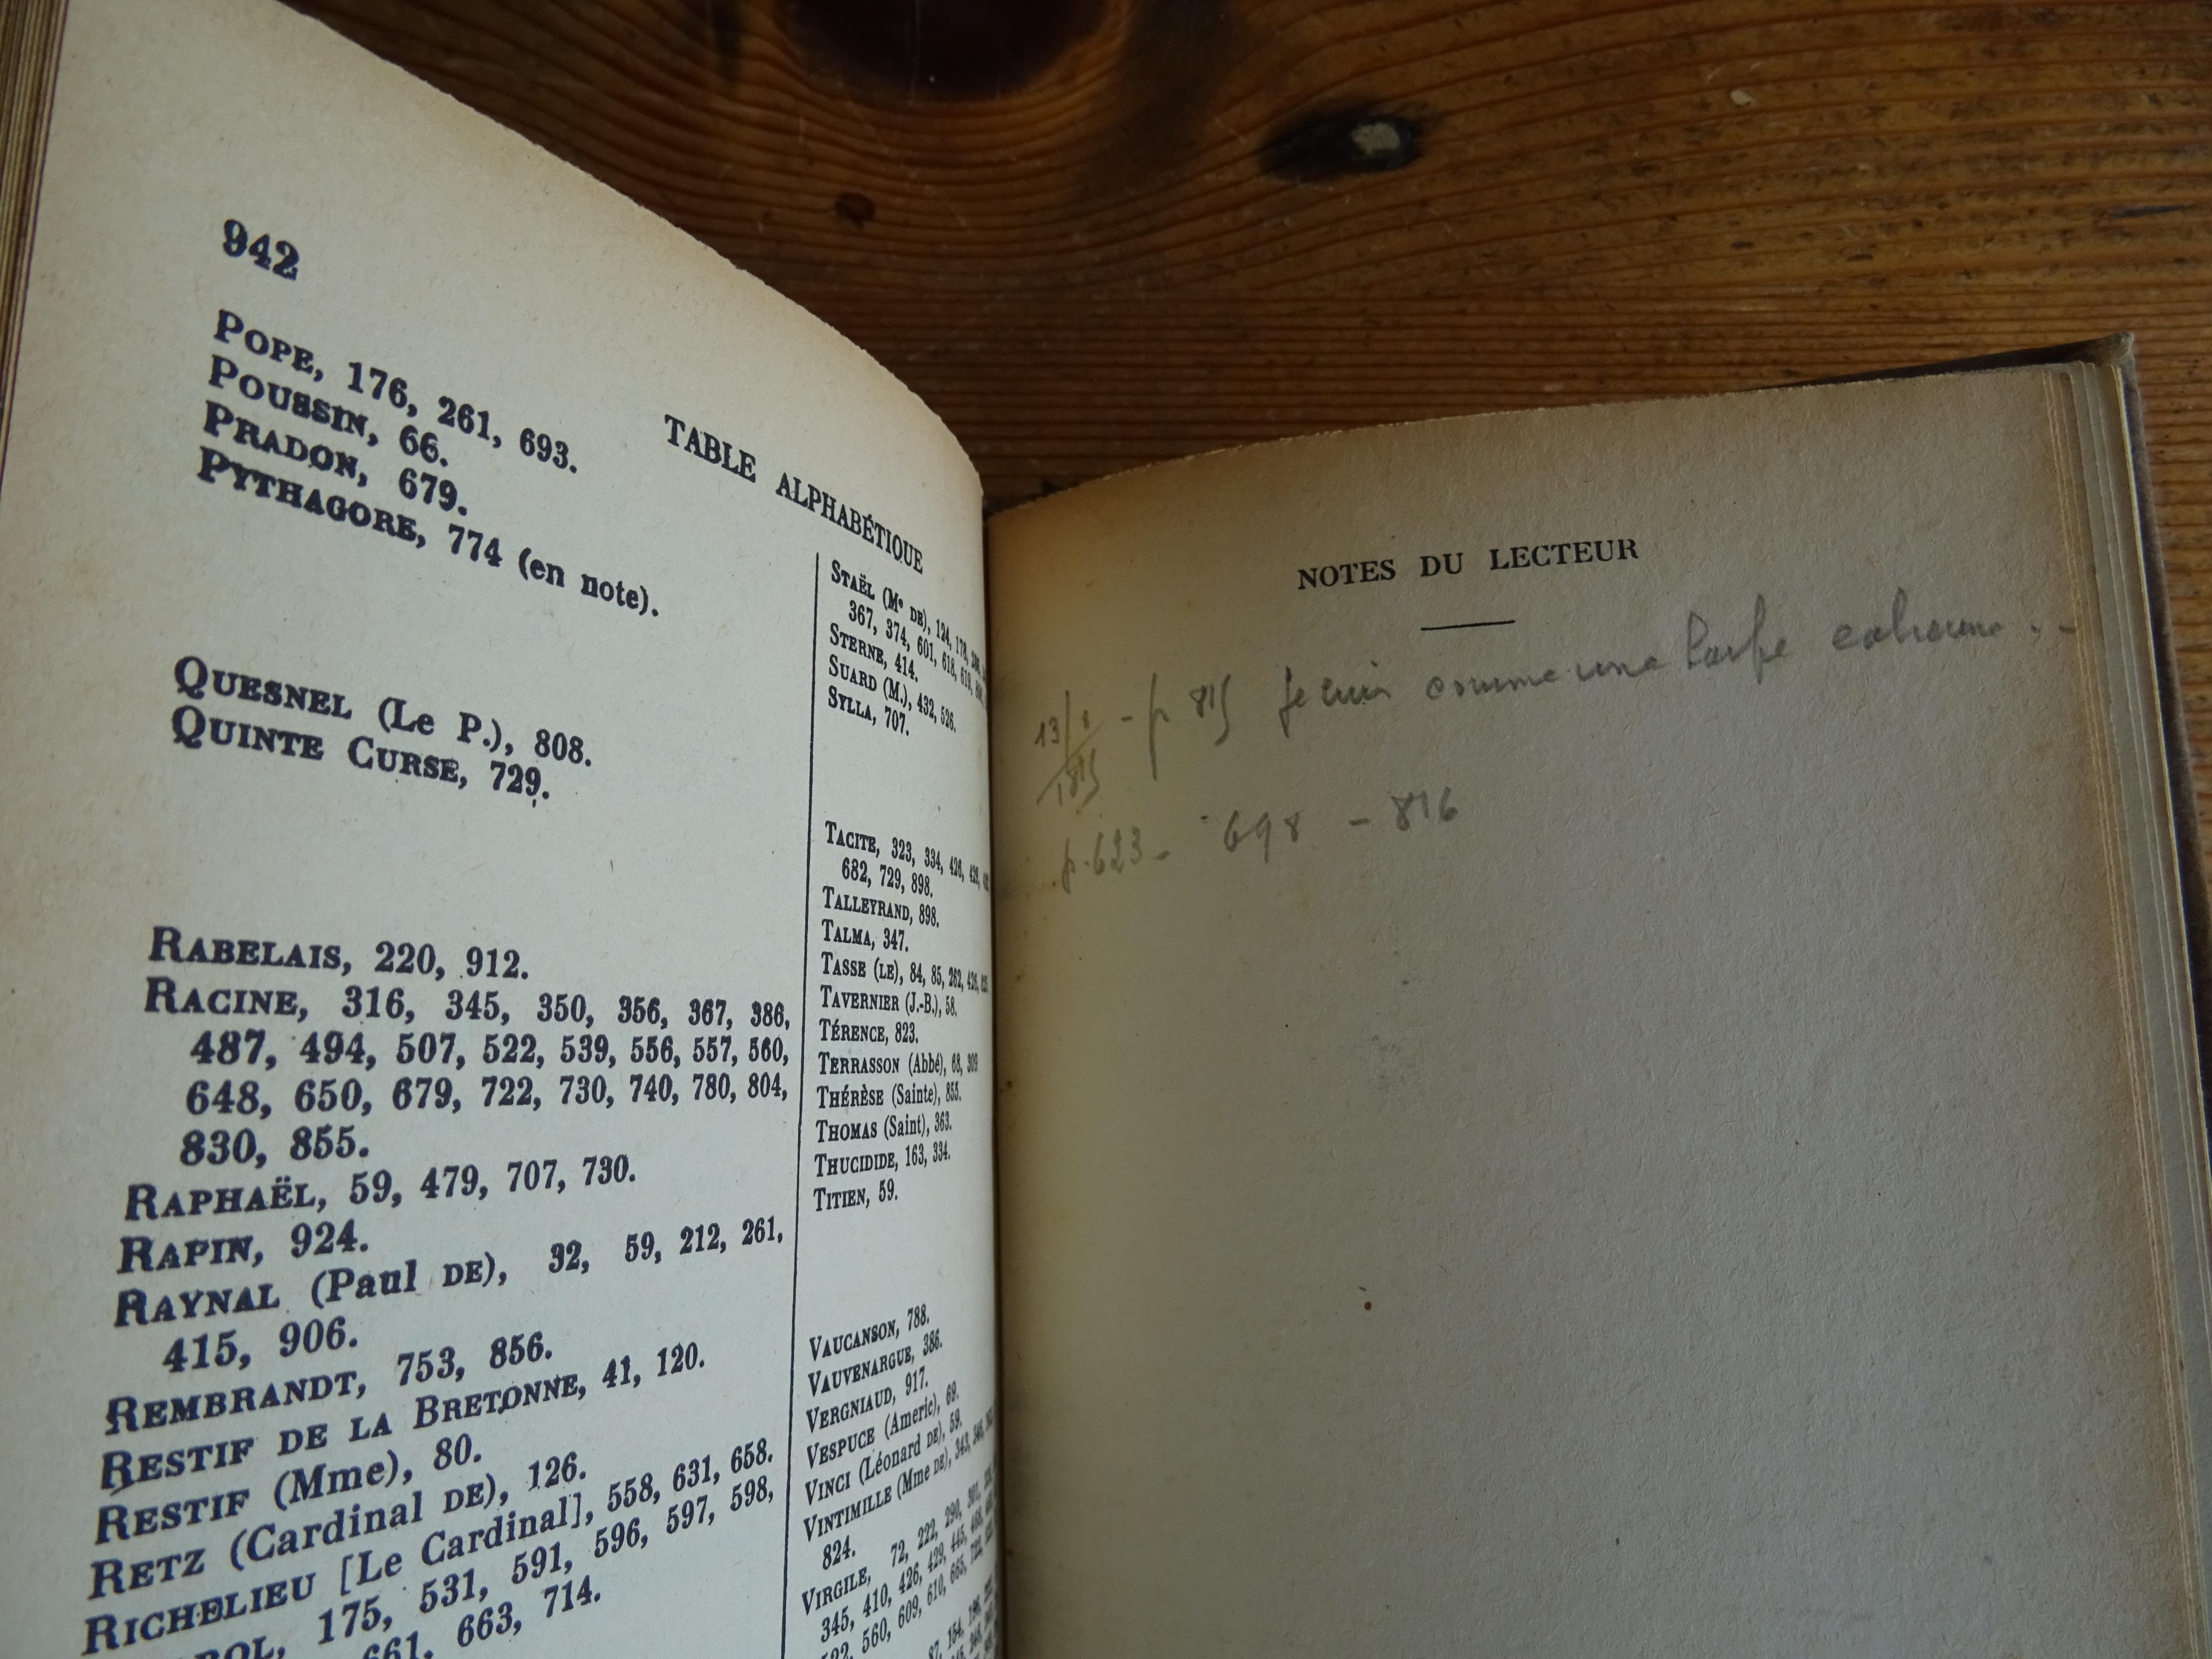 942
TABLE ALPHABÉTIQUE
POPE, 176, 261, 693.
POUSSIN, 66.
PRADON, 679.
PYTHAGORE, 774 (en note).
QUESNEL (Le P.), 808.
QUINTE CURSE, 729.
RABELAIS, 220, 912.
RACINE, 316, 345, 350, 356, 367, 386,
487, 494, 507, 522, 539, 556, 557, 560,
648, 650, 679, 722, 730, 740, 780, 804,
830, 855.
RAPHAËL, 59, 479, 707, 730.
RAPIN, 924.
RAYNAL (Paul DE), 32, 59, 212, 261,
415, 906.
REMBRANDT, 753, 856.
RESTIF DE LA BRETONNE, 41, 120.
RESTIF (Mme), 80.
RETZ (Cardinal DE), 126.
RICHELIEU [Le Cardinal], 558, 631, 658.
175, 531, 591, 596, 597, 598,
661, 663, 714.
STAËL (Me DE), 124, 178,
367, 374, 601, 618, 619,
STERNE, 414.
SUARD (M.), 432, 526.
SYLLA, 707.
TACITE, 323, 334, 426,
682, 729, 898.
TALLEYRAND, 898.
TALMA, 347.
TASSE (LE), 84, 85, 262, 426,
TAVERNIER (J.-B.), 58.
TÉRENCE, 823.
TERRASSON (Abbé), 68, 309
THÉRÈSE (Sainte), 855.
THOMAS (Saint), 363.
THUCIDIDE, 163, 334.
TITIEN, 59.
VAUCANSON, 788.
VAUVENARGUE, 386.
VERGNIAUD, 917.
VESPUCE (Americ), 69.
VINCI (Léonard DE), 59.
VINTIMILLE (Mme DE), 343,
824.
VIRGILE, 72, 222, 290, 301,
345, 410, 426, 429, 445,
522, 560, 609, 610, 665,
87, 154,
NOTES DU LECTEUR
13/1/1815 - p 815 Je suis comme une harpe
p. 623 - 698 - 816